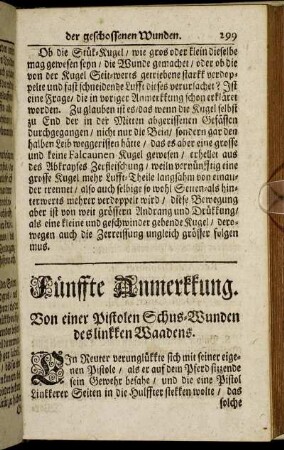 der geschossenen Wunden. 299
Ob die Stük-Kugel / wie gros oder klein dieselbe
mag gewesen seyn / die Wunde gemachet / oder ob die
von der Kugel Seit-werts getriebene starkk verdop-
pelte und fast schneidende Lufft dieses verursacher? Ist
eine Frage / die in voriger Anmerkkung schon erklärt
worden. Zu glauben ist es / das wenn die Kugel selbst
zu End der in der Mitten abgerissenen Gefässen
durchgegangen / nicht nur die Bein / sondern gar den
halben Leib weggerissen hätte / das es aber eine grosse
und keine Falcaunen Kugel gewesen / erhellet aus
des Abkrayses Zerfleischung / weiln vernünfftig eine
grosse Kugel mehr Lufft-Theile langsahm von einan-
der trennet / also auch selbige so wohl Seuen- als hin-
terwerts mehrer verdoppelt wird / diese Bewegung
aber ist von weit grössern Andrang und Drükkung /
als eine kleine und geschwinder gehende Kugel / dero-
wegen auch die Zerreissung ungleich grösser folgen
mus.
Fünffte Anmerkkung.
Von einer Pistolen Schus-Wunden
des linkken Waadens.
EIn Reuter verunglükkte sich mit seiner eige-
nen Pistole / als er auf dem Pferd sitzende
sein Gewehr besahe / und die eine Pistol
Linkkerer Seiten in die Hulffter stekken wolte / das
solche